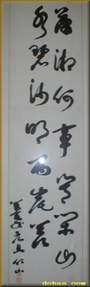 瀟湘何事等閒回
水碧沙明兩岸苔